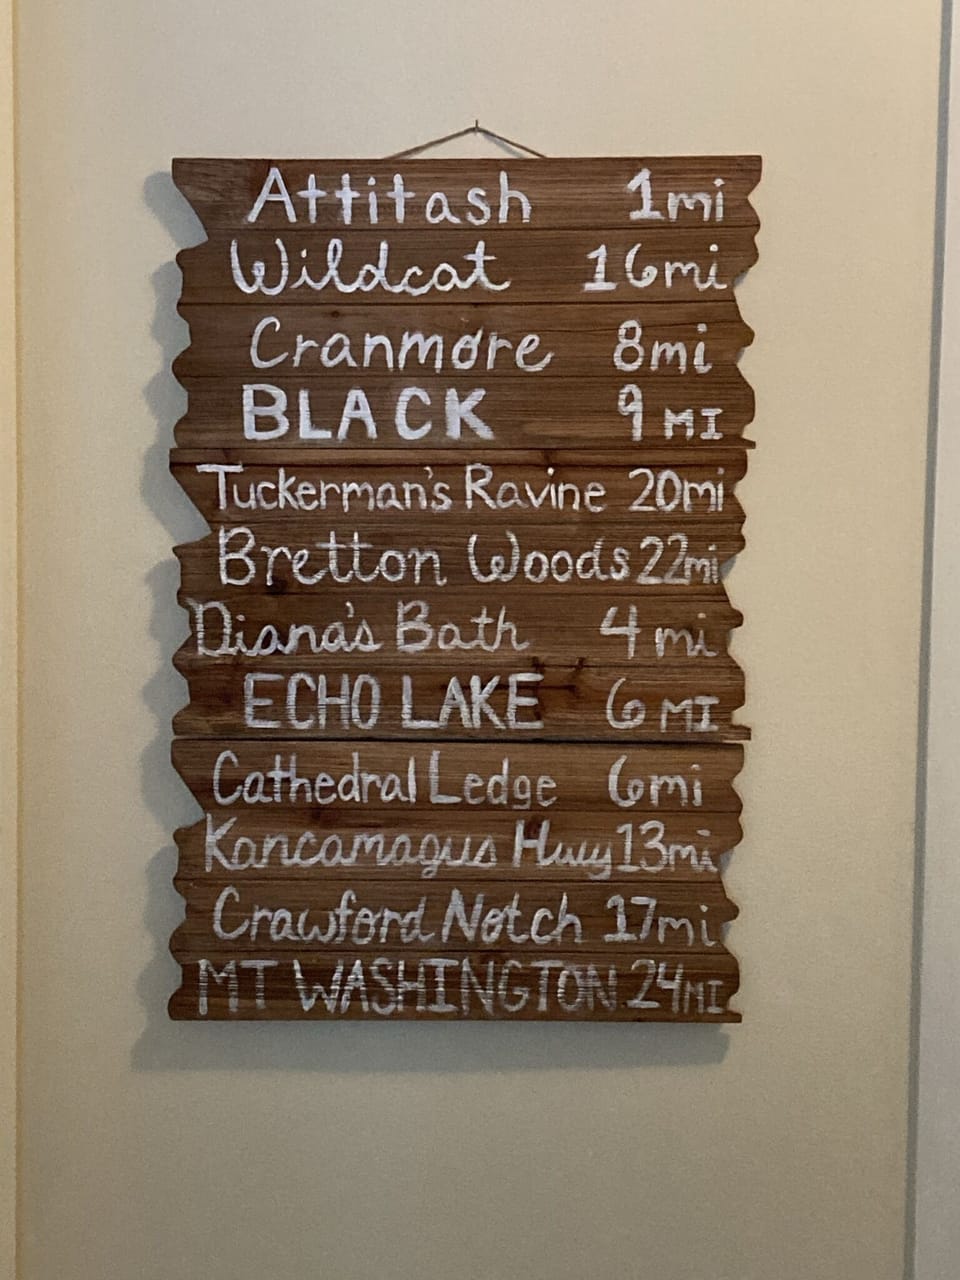 Attitash 1mi
Wildcat 16mi
Cranmore 8mi
BLACK 9 MI
Tuckerman's Ravine 20mi
Bretton Woods 22mi
Diana's Bath 4 mi
ECHO LAKE 6 MI
Cathedral Ledge 6mi
Kancamagus Hwy 13mi
Crawford Notch 17mi
MT WASHINGTON 24MI